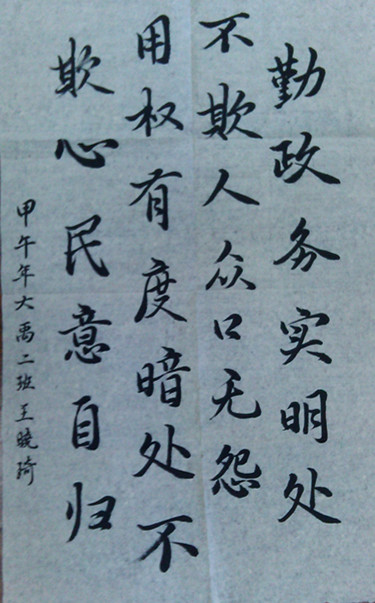 勤政务实明处
不欺人众口无怨
用权有度暗处不
欺心民意自归
甲午年大禹二班王晓琦